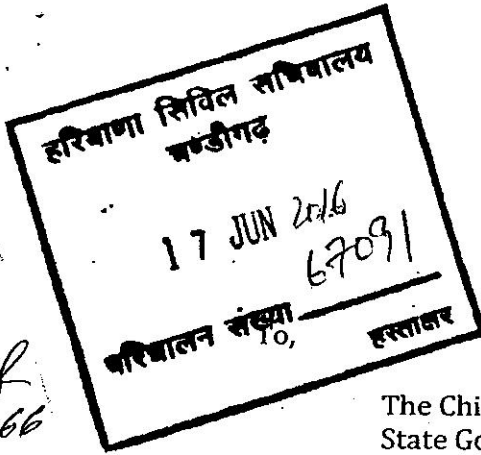 हरियाणा सिविल सचिवालय
चण्डीगढ़
17 JUN 2016
67091
परिचालन संख्या
हस्ताक्षर
To,
66
The Chi
State Go